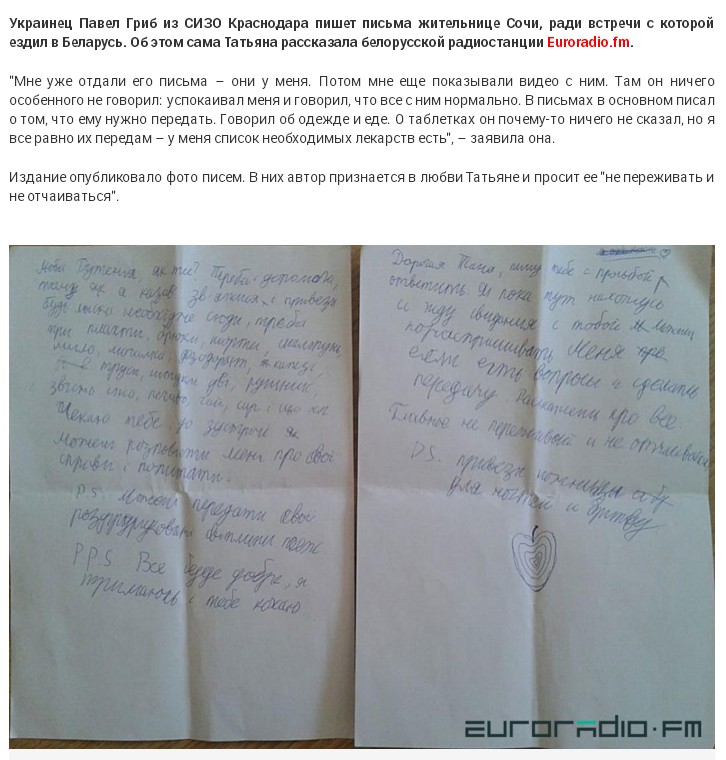 Украинец Павел Гриб из СИЗО Краснодара пишет письма жительнице Сочи, ради встречи с которой
ездил в Беларусь. Об этом сама Татьяна рассказала белорусской радиостанции Euroradio.fm.
"Мне уже отдали его письма – они у меня. Потом мне еще показывали видео с ним. Там он ничего
особенного не говорил: успокаивал меня и говорил, что все с ним нормально. В письмах в основном писал
о том, что ему нужно передать. Говорил об одежде и еде. О таблетках он почему-то ничего не сказал, но я
все равно их передам – у меня список необходимых лекарств есть", – заявила она.
Издание опубликовало фото писем. В них автор признается в любви Татьяне и просит ее "не переживать и
не отчаиваться".
як ти? Треба допомога,
і привези
треба
три плаття, брюки, шорти,
мило, мочалка, дезодорант,
труси, дві,
чай, сир і
Чекаю тебе,
Можеш розповісти мені про свої
справи і попитати.
P.S. Можеш передати свої
P.P.S. Все буде добре, я
тримаюсь і тебе кохаю
Дорогая Таня, пишу тебе с просьбой
ответить. Я пока тут нахожусь
и жду свидания с тобой. Можешь
порасспрашивать меня
если есть вопросы и сделать
передачу. Расскажешь про все.
Главное не переживай и не отчаивайся
P.S. привези ножницы
для ногтей и бритву
euroradio.fm